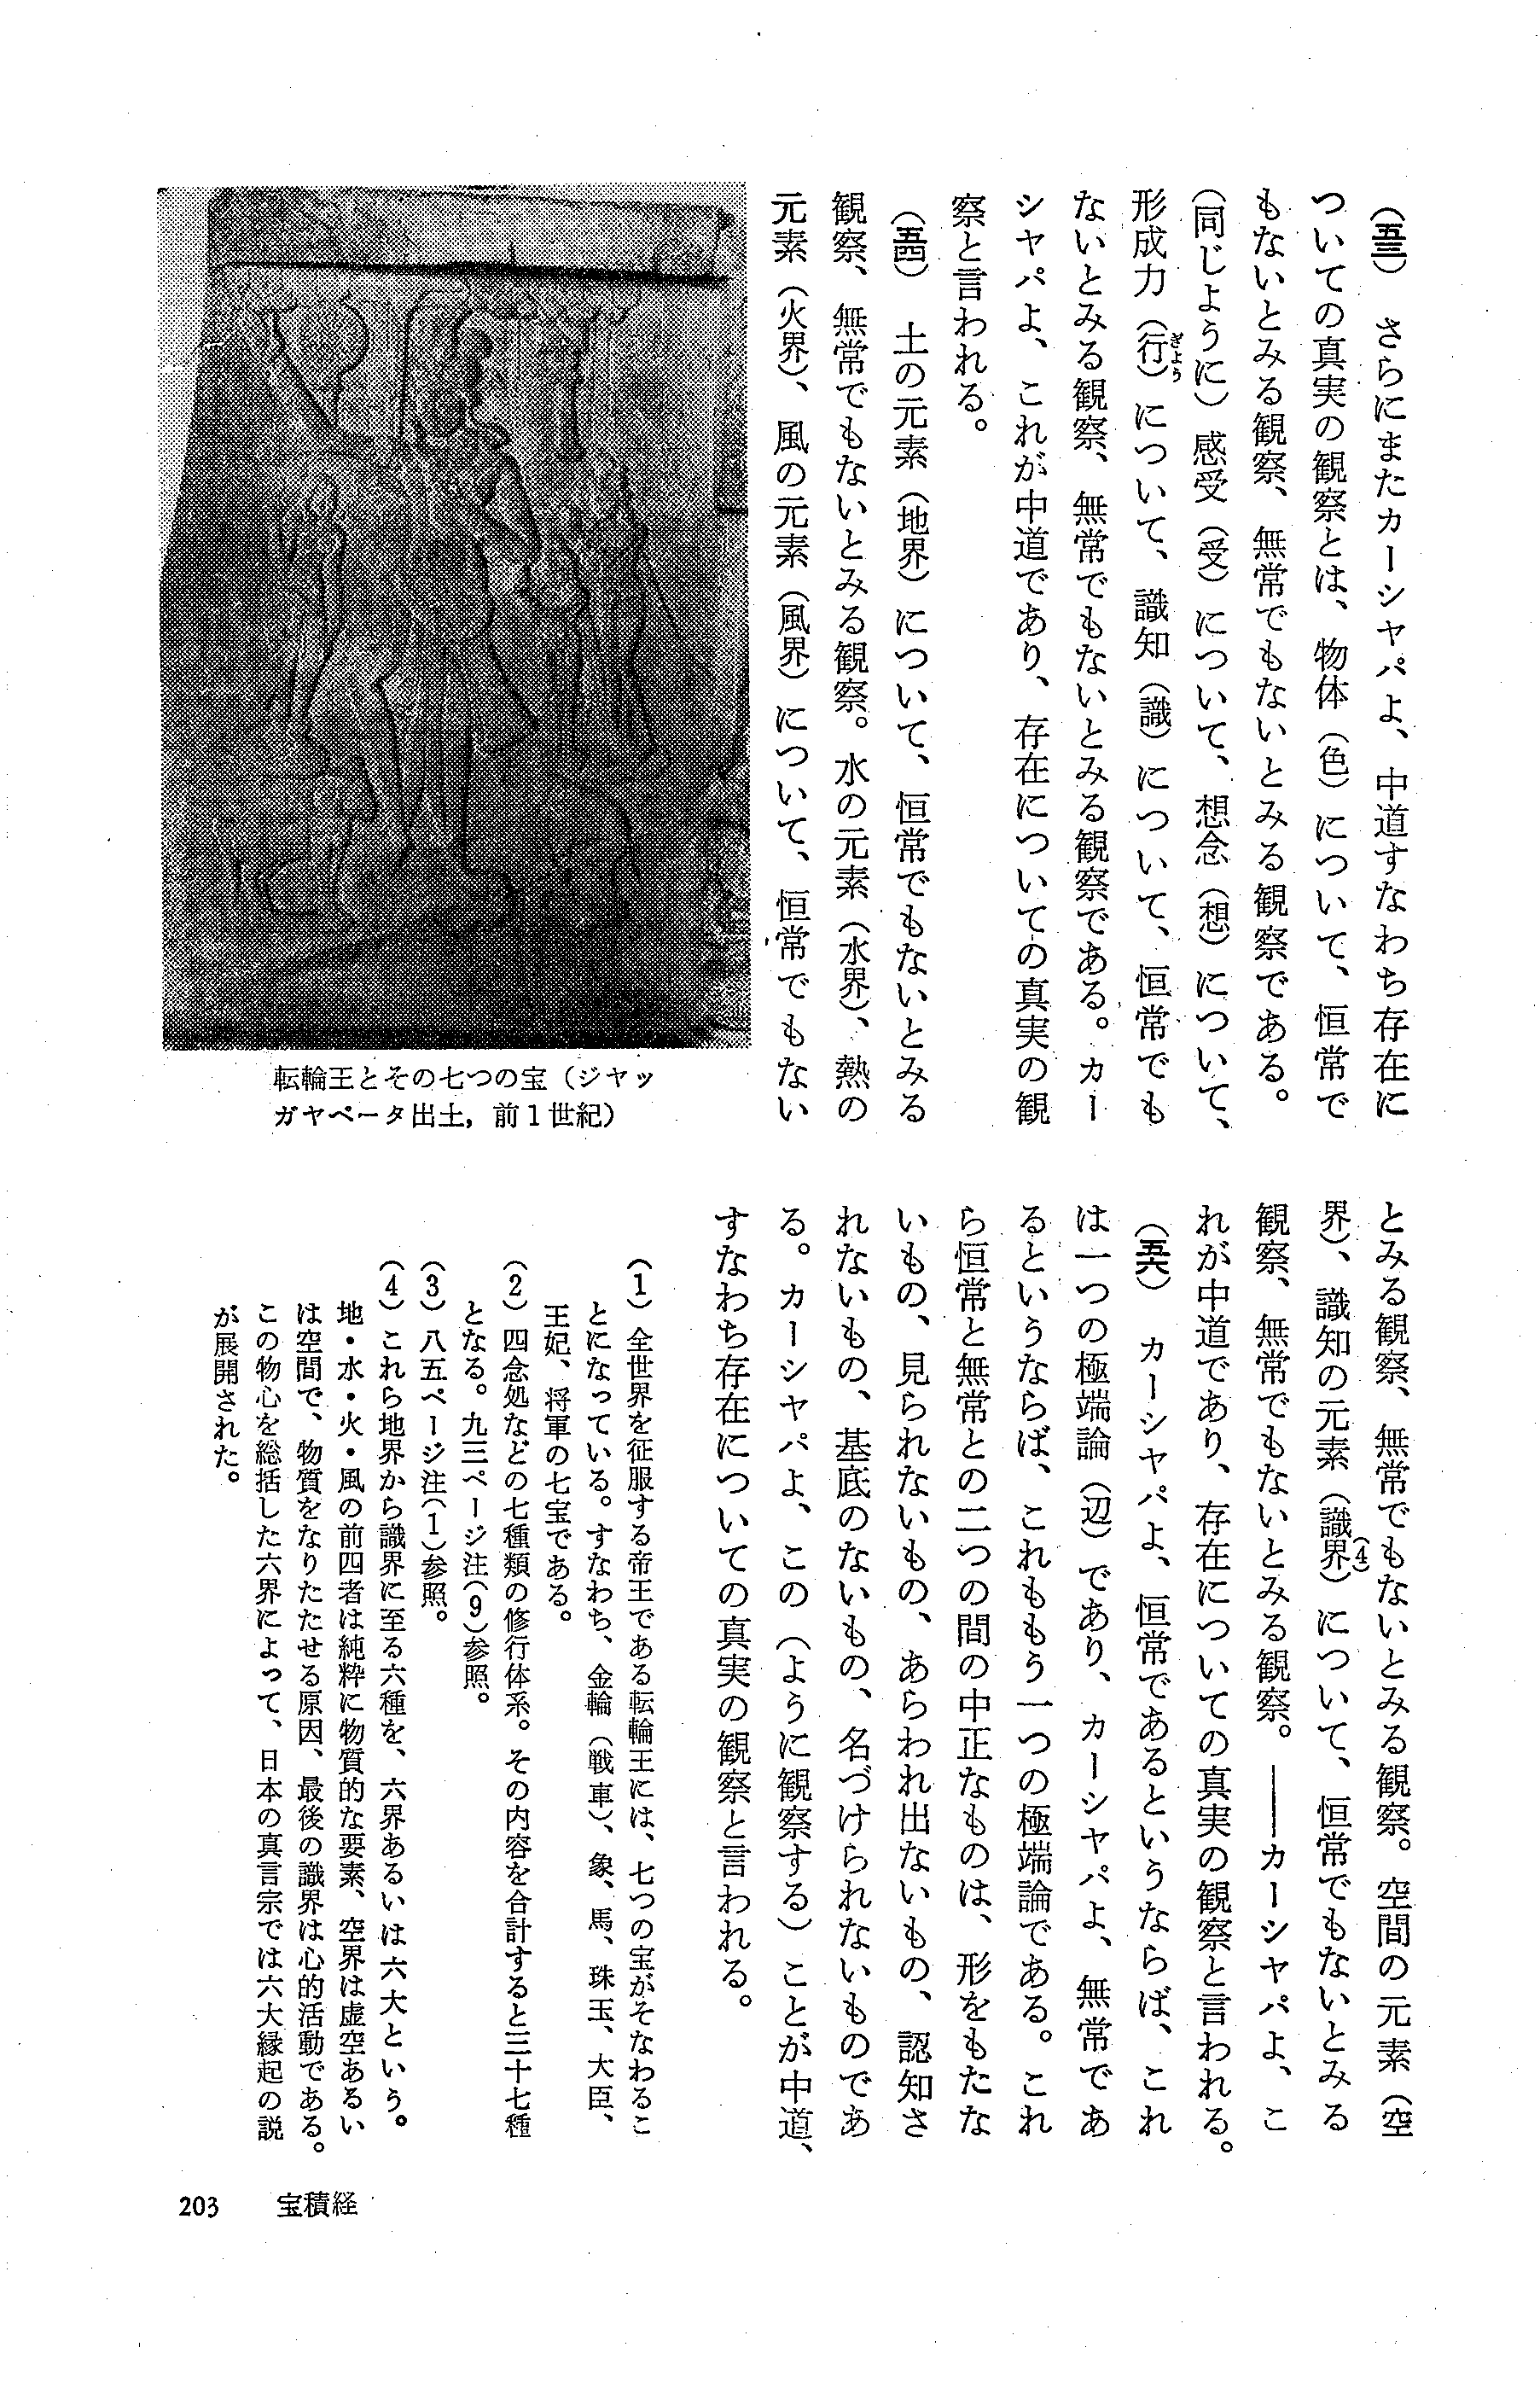 （五三）　さらにまたカーシャパよ、中道すなわち存在に
ついての真実の観察とは、物体（色）について、恒常で
もないとみる観察、無常でもないとみる観察である。
（同じように）感受（受）について、想念（想）について、
形成力（行）について、識知（識）について、恒常でも
ぎょう
ないとみる観察、無常でもないとみる観察である。カー
シャパよ、これが中道であり、存在についての真実の観
察と言われる。
（五四）　土の元素（地界）について、恒常でもないとみる
観察、無常でもないとみる観察。水の元素（水界）、熱の
元素（火界）、風の元素（風界）について、恒常でもない
転輪王とその七つの宝（ジャッ
ガヤペータ出土，前1世紀）
とみる観察、無常でもないとみる観察。空間の元素（空
界）、識知の元素（識界）について、恒常でもないとみる
（4）
観察、無常でもないとみる観察。――カーシャパよ、こ
れが中道であり、存在についての真実の観察と言われる。
（五六）　カーシャパよ、恒常であるというならば、これ
は一つの極端論（辺）であり、カーシャパよ、無常であ
るというならば、これももう一つの極端論である。これ
ら恒常と無常との二つの間の中正なものは、形をもたな
いもの、見られないもの、あらわれ出ないもの、認知さ
れないもの、基底のないもの、名づけられないものであ
る。カーシャパよ、この（ように観察する）ことが中道、
すなわち存在についての真実の観察と言われる。
（1）全世界を征服する帝王である転輪王には、七つの宝がそなわるこ
とになっている。すなわち、金輪（戦車）、象、馬、珠玉、大臣、
王妃、将軍の七宝である。
（2）四念処などの七種類の修行体系。その内容を合計すると三十七種
となる。九三ページ注（9）参照。
（3）八五ページ注（1）参照。
（4）これら地界から識界に至る六種を、六界あるいは六大という。
地・水・火・風の前四者は純粋に物質的な要素、空界は虚空あるい
は空間で、物質をなりたたせる原因、最後の識界は心的活動である。
この物心を総括した六界によって、日本の真言宗では六大縁起の説
が展開された。
203　宝積経